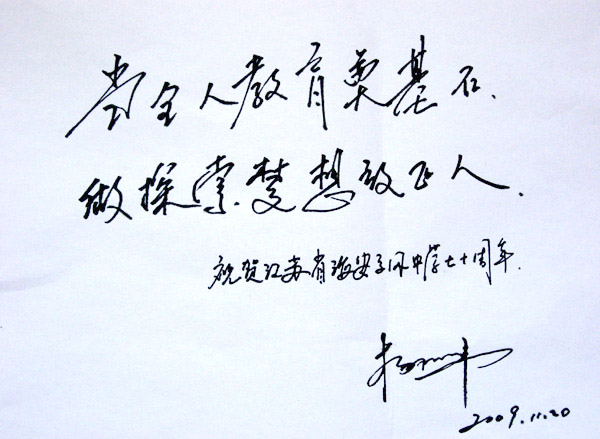 当全人教育奠基石、
做探索梦想放飞人.
祝贺江苏省海安中学七十周年.
2009.11.20